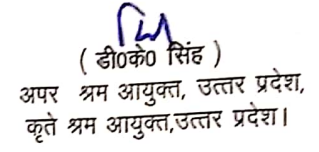 ( डी0के0 सिंह )
अपर श्रम आयुक्त, उत्तर प्रदेश,
कृते श्रम आयुक्त,उत्तर प्रदेश।